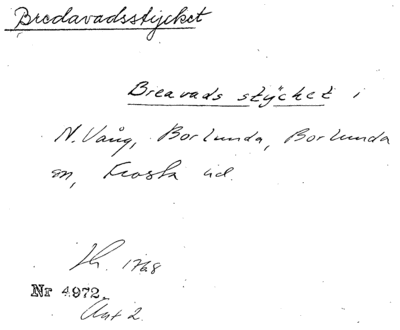 Bredavadsstycket
Breavads stÿcket i
N. Vång, Borlunda, Borlunda
sn, Frosta hd.
Lh. 1768
Nr 4972.
Akt 2.